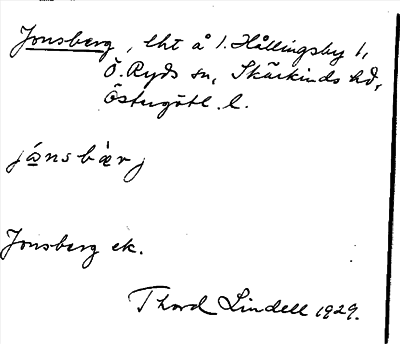 Jonsberg, lht å 1. Hållingsby 1,
Ö. Ryds sn, Skärkinds hd,
Östergötl. l.
jo̲nsbærj
Jonsberg ek.
Thord Lindell 1929.